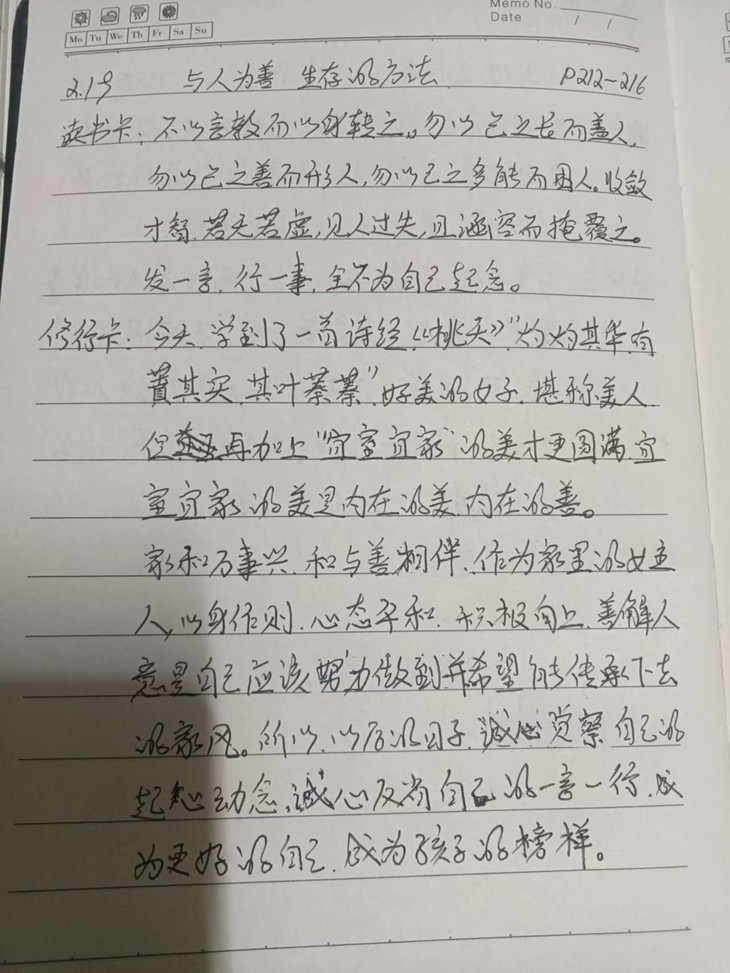 Memo No.
Date / /
Mo Tu We Th Fr Sa Su
2.19 与人为善 生存的方法 P212-216
读书卡：不以言教而以身转之。勿以己之长而盖人，
勿以己之善而形人，勿以己之多能而困人。收敛
才智，若无若虚，见人过失，且涵容而掩覆之。
发一言，行一事，全不为自己起念。
修行卡：今天，学到了一首诗经《桃夭》"灼灼其华，有
蕡其实，其叶蓁蓁"，好美的女子，堪称美人
但再加上"宜室宜家"的美才更圆满，宜
室宜家的美是内在的美，内在的善。
家和万事兴，和与善相伴，作为家里的女主
人，以身作则，心态平和，积极向上，善解人
意是自己应该努力做到并希望能传承下去
的家风。所以，以后的日子，诚心觉察自己的
起心动念，诚心反省自己的一言一行，成
为更好的自己，成为孩子的榜样。